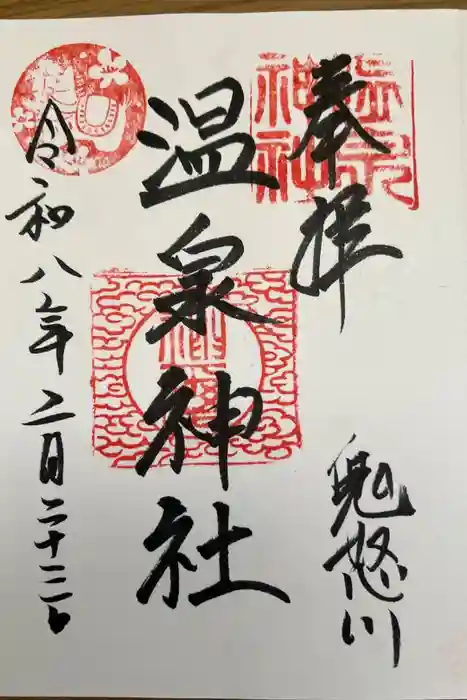 奉拝
鬼怒川
温泉神社
令和八年二月二十三日